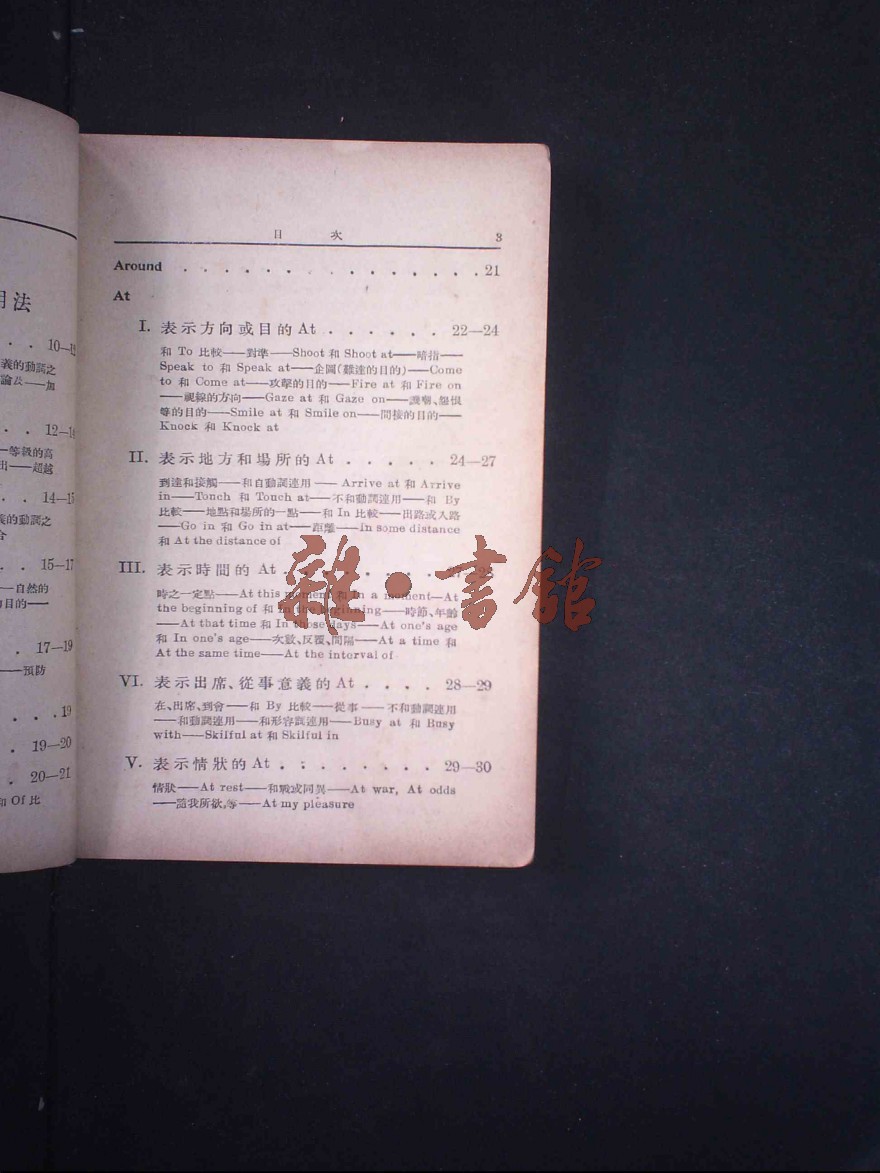 用法
10—12
義的動詞之
論及——無
12—14
—等級的高
出——超越
14—15
義的動詞之
合
15—17
——自然的
的目的——
17—19
——預防
19
19—20
20—21
和 Of 比
目 次 3
Around . . . . . . . . . . . . . . . 21
At
I. 表示方向或目的 At . . . . . . 22—24
和 To 比較——對準——Shoot 和 Shoot at——暗指——
Speak to 和 Speak at——企圖(難達的目的)——Come
to 和 Come at——攻擊的目的——Fire at 和 Fire on
——視線的方向——Gaze at 和 Gaze on——譏嘲、怨恨
等的目的——Smile at 和 Smile on——間接的目的——
Knock 和 Knock at
II. 表示地方和場所的 At . . . . . 24—27
到達和接觸——和自動詞連用——Arrive at 和 Arrive
in——Touch 和 Touch at——不和動詞連用——和 By
比較——地點和場所的一點——和 In 比較——出路或入路
——Go in 和 Go in at——距離——In some distance
和 At the distance of
III. 表示時間的 At . . . . . . . . 27—28
時之一定點——At this moment 和 In a moment—At
the beginning of 和 In the beginning——時節、年齡
——At that time 和 In those days——At one's age
和 In one's age——次數、反覆、間隔——At a time 和
At the same time——At the interval of
VI. 表示出席、從事意義的 At . . . . 28—29
在、出席、到會——和 By 比較——從事——不和動詞連用
——和動詞連用——和形容詞連用——Busy at 和 Busy
with——Skilful at 和 Skilful in
V. 表示情狀的 At . . . . . . . . 29—30
情狀——At rest——和戰或同異——At war, At odds
——隨我所欲,等——At my pleasure
雜·書館